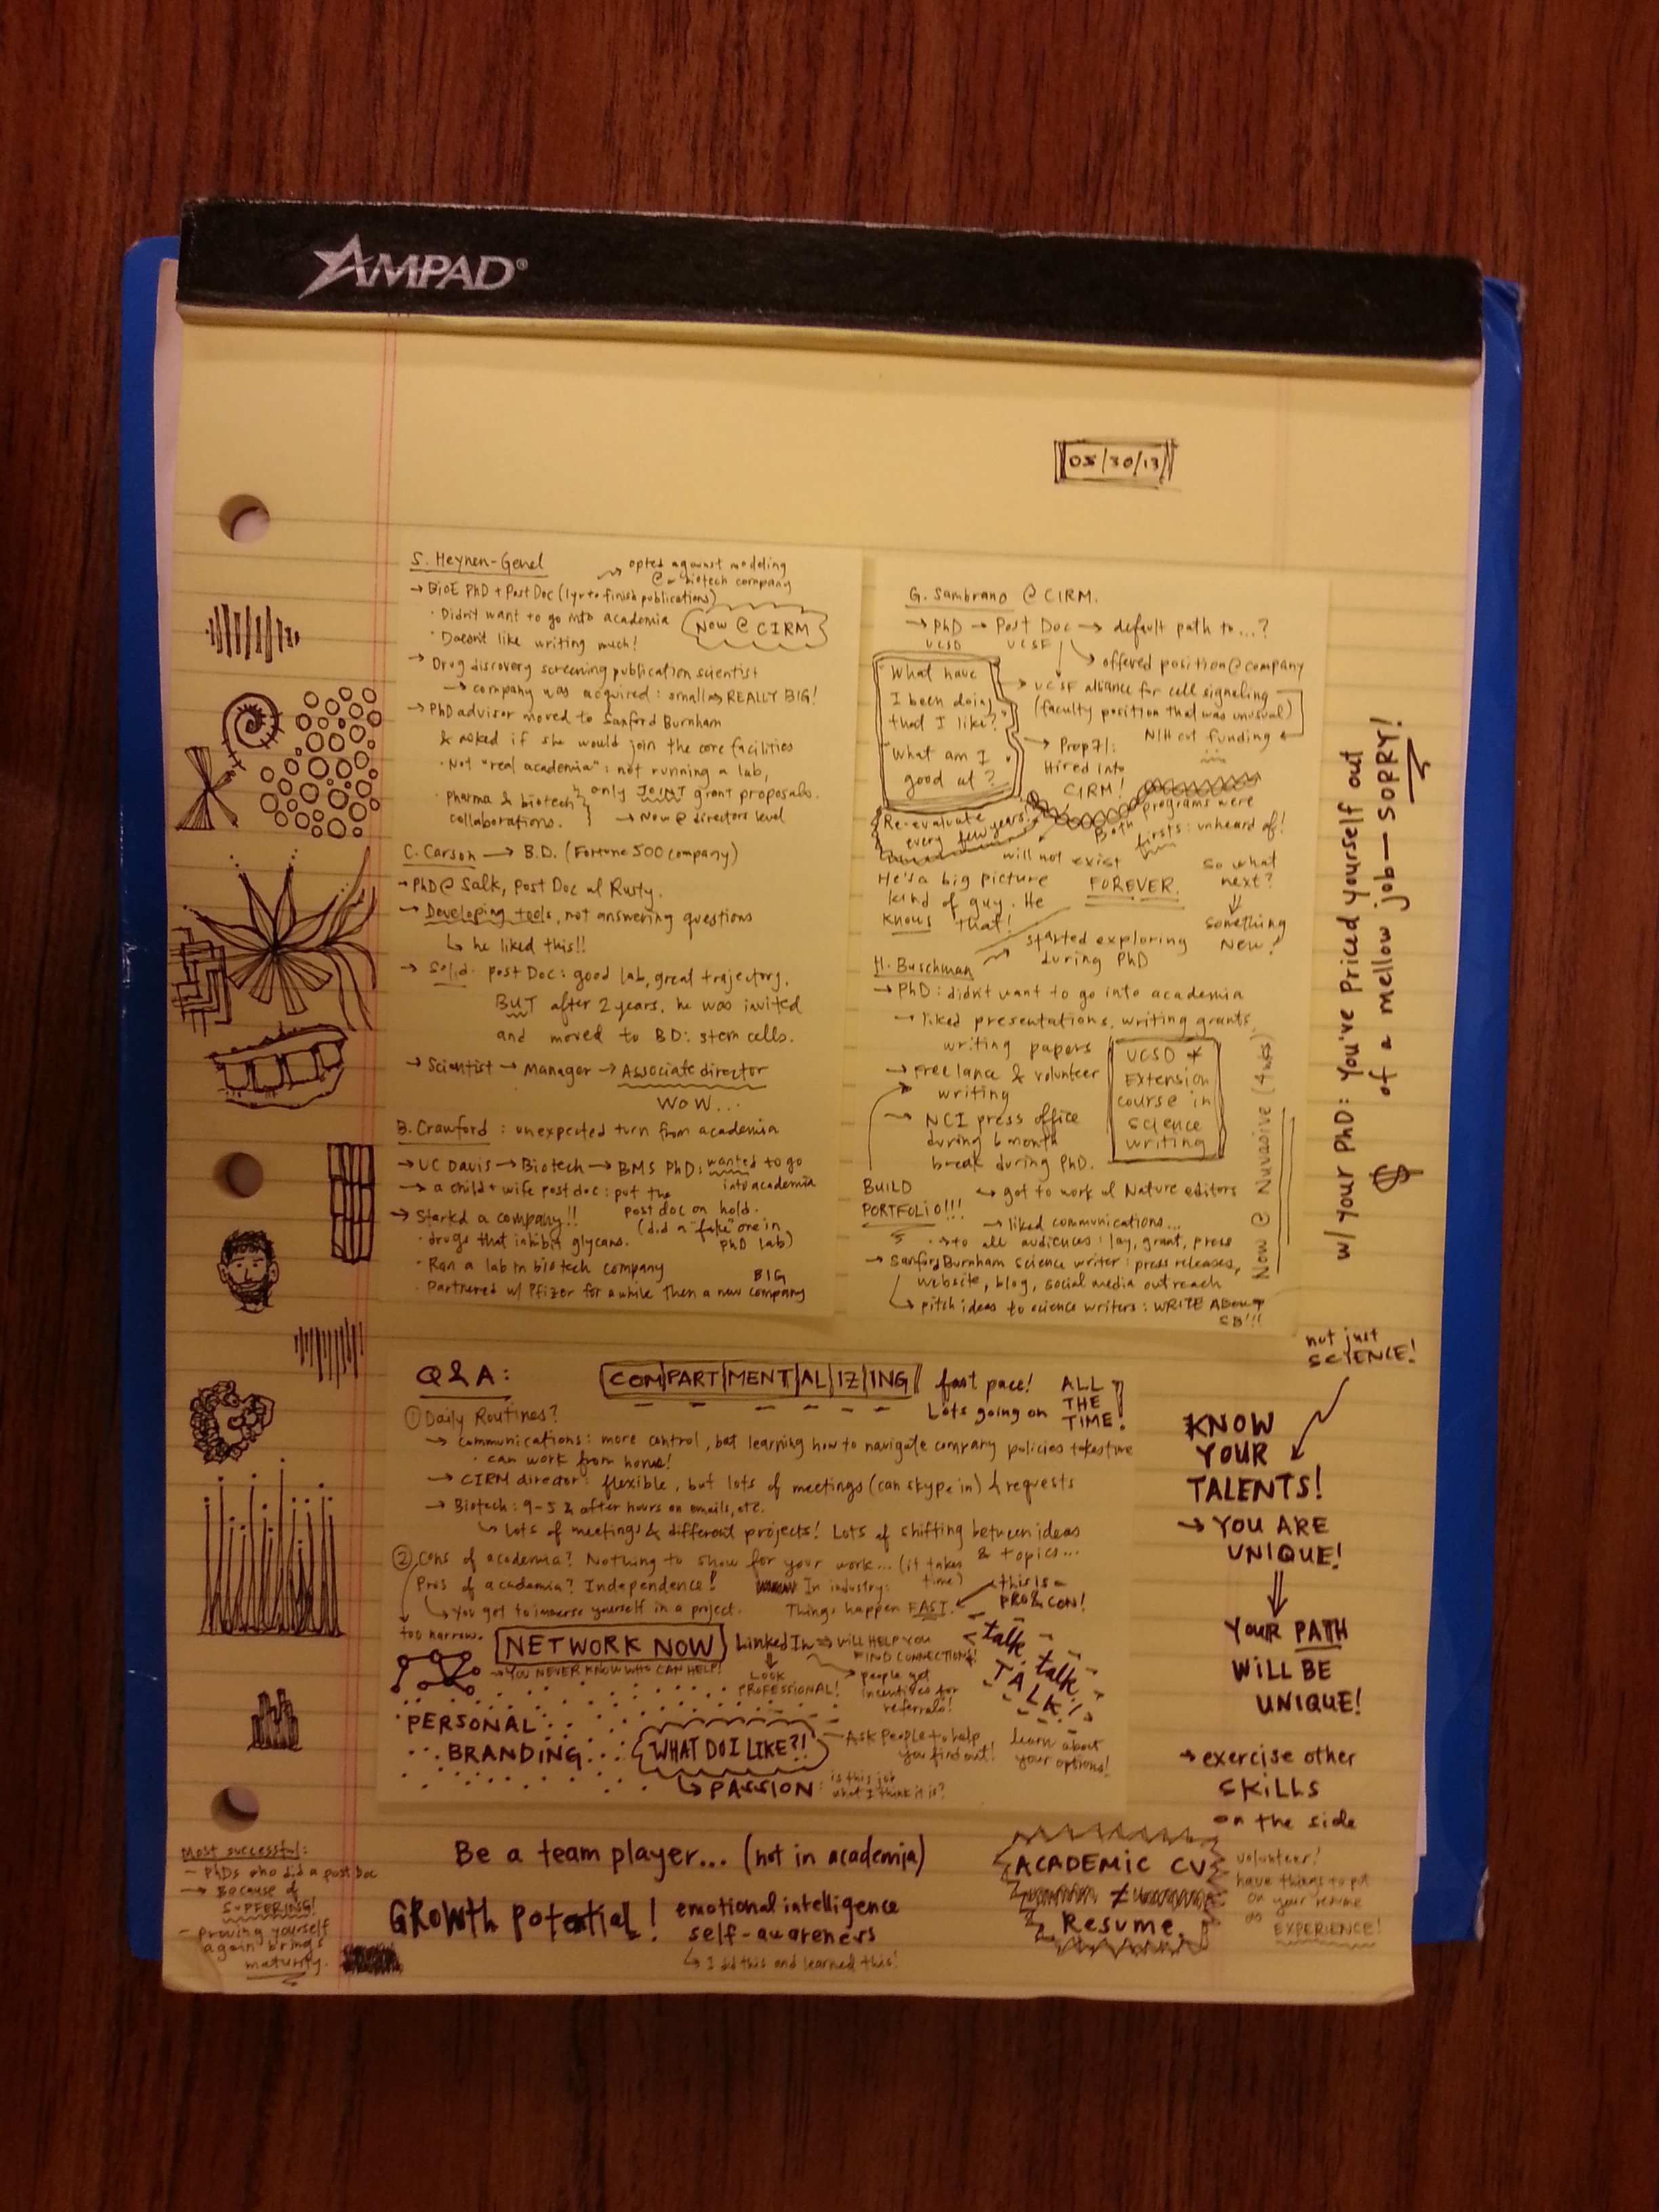 AMPAD®
05/30/13
S. Heynen-Genel
opted against modeling
@ a biotech company
→ BioE PhD + Post Doc (1yr to finish publications)
· Didn't want to go into academia
Now @ CIRM
· Doesn't like writing much!
→ Drug discovery screening publication scientist
→ company was acquired: small → REALLY BIG!
→ PhD advisor moved to Sanford Burnham
& asked if she would join the core facilities
· Not "real academia": not running a lab,
only JOINT grant proposals.
· Pharma & biotech
collaborations.
→ Now @ directors level
C. Carson → B.D. (Fortune 500 company)
→ PhD @ Salk, Post Doc w/ Rusty.
→ Developing tools, not answering questions
↳ he liked this!!
→ Solid post Doc: good lab, great trajectory.
BUT after 2 years, he was invited
and moved to BD: stem cells.
→ Scientist → Manager → Associate director
WOW...
B. Crawford: unexpected turn from academia
→ UC Davis → Biotech → BMS PhD: wanted to go
into academia
→ a child + wife post doc: put the
post doc on hold.
(did a "fake" one in
PhD lab)
→ Started a company!!
· drugs that inhibit glycans.
· Ran a lab in biotech company
· Partnered w/ Pfizer for a while then a new BIG company
G. Sambrano @ CIRM.
→ PhD → Post Doc → default path to...?
UCSD UCSF
→ offered position @ company
→ UCSF alliance for cell signaling
(faculty position that was unusual)
NIH cut funding
"What have
I been doing
that I like?"
"What am I
good at?"
→ Prop 71:
Hired into
CIRM!
Re-evaluate
every few years!
Both programs were
firsts: unheard of!
will not exist
FOREVER.
So what
next?
⇓
Something
New!
He's a big picture
kind of guy. He
KNOWS that!
started exploring
during PhD
H. Buschman
→ PhD: didn't want to go into academia
→ liked presentations, writing grants,
writing papers
→ Freelance & volunteer
writing
→ NCI press office
during 6 month
break during PhD.
UCSD *
Extension
course in
science
writing
BUILD
PORTFOLIO!!!
→ got to work w/ Nature editors
→ liked communications...
· → to all audiences: lay, grant, press
→ Sanford Burnham Science writer: press releases,
website, blog, social media outreach
↳ pitch ideas to science writers: WRITE ABOUT
SB!!!
Now @ Nuvasive (4wks)
w/ your PhD: You've priced yourself out
of a mellow job — SORRY!
$
Q&A:
COMPARTMENTALIZING
fast pace!
Lots going on
ALL
THE
TIME!
① Daily Routines?
→ communications: more control, but learning how to navigate company policies takes time
· can work from home!
→ CIRM director: flexible, but lots of meetings (can skype in) & requests
→ Biotech: 9-5 & after hours on emails, etc.
↳ Lots of meetings & different projects! Lots of shifting between ideas
& topics...
② Cons of academia? Nothing to show for your work... (it takes
time)
Pros of academia? Independence!
↳ You get to immerse yourself in a project.
too narrow.
In industry:
Things happen FAST.
this is a
PRO & CON!
NETWORK NOW
→ YOU NEVER KNOW WHO CAN HELP!
LinkedIn ⇒ WILL HELP YOU
FIND CONNECTIONS!
LOOK
PROFESSIONAL!
people get
incentives for
referrals!
talk talk
TALK!
PERSONAL
BRANDING
WHAT DO I LIKE?!
Ask people to help
you find out!
learn about
your options!
↳ PASSION:
is this job
what I think it is?
not just
SCIENCE!
KNOW
YOUR
TALENTS!
→ YOU ARE
UNIQUE!
⇓
YOUR PATH
WILL BE
UNIQUE!
→ exercise other
SKILLS
on the side
volunteer!
have things to put
on your resume
as
EXPERIENCE!
Most successful:
— PhDs who did a post Doc
→ Because of
SUFFERING!
— Proving yourself
again brings
maturity.
Be a team player... (not in academia)
Growth potential!
emotional intelligence
self-awareness
↳ I did this and learned this!
ACADEMIC CV
≠
Resume.